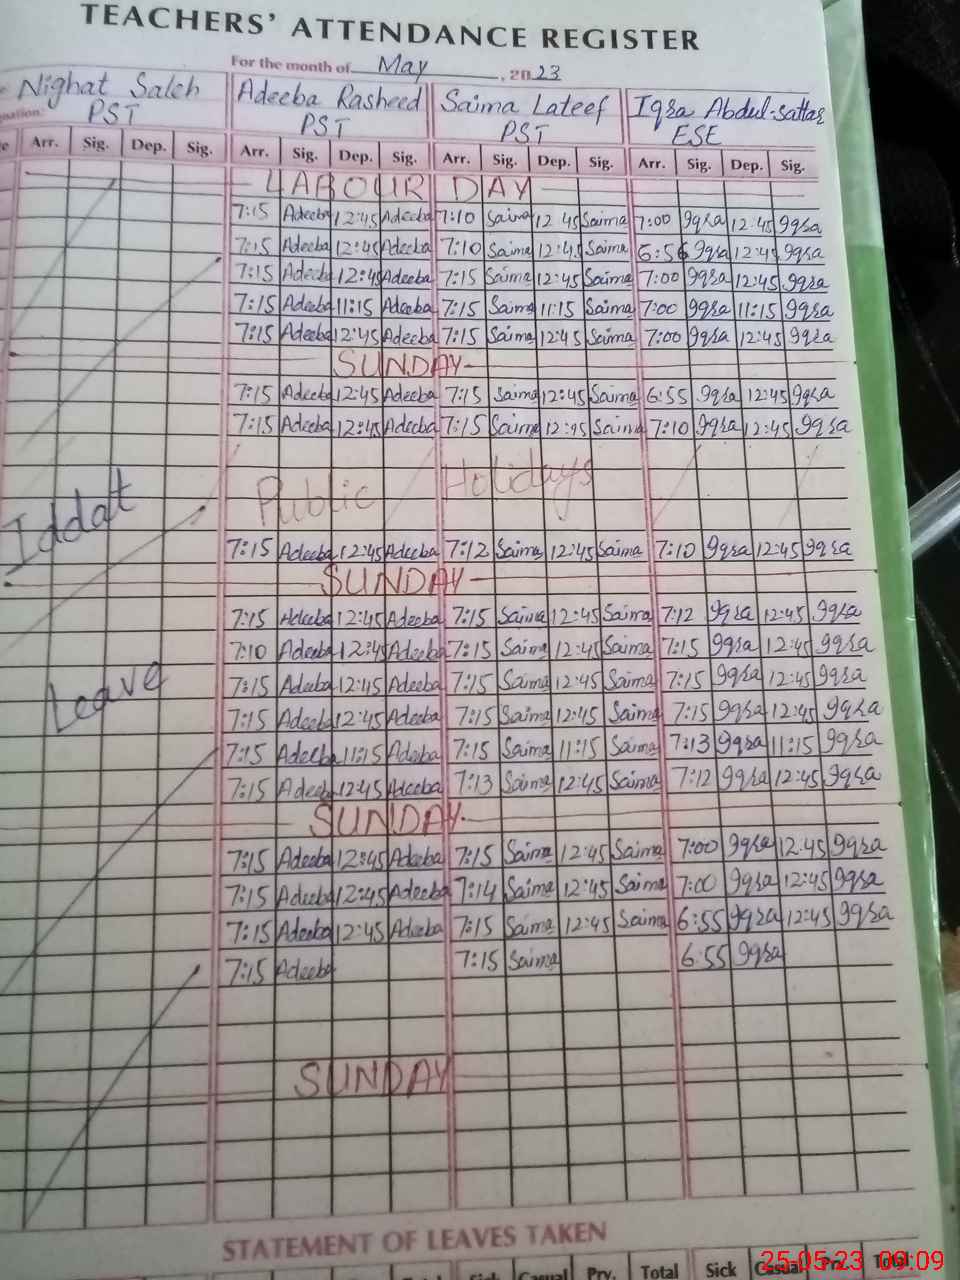 TEACHERS' ATTENDANCE REGISTER
For the month of May, 2023
Nighat Saleh Adeeba Rasheed Saima Lateef Iqra Abdul-Sattar
PST PST PST ESE
Arr. Sig. Dep. Sig. Arr. Sig. Dep. Sig. Arr. Sig. Dep. Sig. Arr. Sig. Dep. Sig.
LABOUR DAY
7:15 Adeeba 12:45 Adeeba 7:10 Saima 12:45 Saima 7:00 Iqra 12:45 Iqra
7:15 Adeeba 12:45 Adeeba 7:10 Saima 12:45 Saima 6:56 Iqra 12:45 Iqra
7:15 Adeeba 12:45 Adeeba 7:15 Saima 12:45 Saima 7:00 Iqra 12:45 Iqra
7:15 Adeeba 11:15 Adeeba 7:15 Saima 11:15 Saima 7:00 Iqra 11:15 Iqra
7:15 Adeeba 12:45 Adeeba 7:15 Saima 12:45 Saima 7:00 Iqra 12:45 Iqra
SUNDAY
7:15 Adeeba 12:45 Adeeba 7:15 Saima 12:45 Saima 6:55 Iqra 12:45 Iqra
7:15 Adeeba 12:45 Adeeba 7:15 Saima 12:45 Saima 7:10 Iqra 12:45 Iqra
Public Holidays
Iddat
7:15 Adeeba 12:45 Adeeba 7:12 Saima 12:45 Saima 7:10 Iqra 12:45 Iqra
SUNDAY
7:15 Adeeba 12:45 Adeeba 7:15 Saima 12:45 Saima 7:12 Iqra 12:45 Iqra
7:10 Adeeba 12:45 Adeeba 7:15 Saima 12:45 Saima 7:15 Iqra 12:45 Iqra
Leave 7:15 Adeeba 12:45 Adeeba 7:15 Saima 12:45 Saima 7:15 Iqra 12:45 Iqra
7:15 Adeeba 12:45 Adeeba 7:15 Saima 12:45 Saima 7:15 Iqra 12:45 Iqra
7:15 Adeeba 11:15 Adeeba 7:15 Saima 11:15 Saima 7:13 Iqra 11:15 Iqra
7:15 Adeeba 12:45 Adeeba 7:13 Saima 12:45 Saima 7:12 Iqra 12:45 Iqra
SUNDAY
7:15 Adeeba 12:45 Adeeba 7:15 Saima 12:45 Saima 7:00 Iqra 12:45 Iqra
7:15 Adeeba 12:45 Adeeba 7:14 Saima 12:45 Saima 7:00 Iqra 12:45 Iqra
7:15 Adeeba 12:45 Adeeba 7:15 Saima 12:45 Saima 6:55 Iqra 12:45 Iqra
7:15 Adeeba 7:15 Saima 6:55 Iqra
SUNDAY
STATEMENT OF LEAVES TAKEN
Sick Casual Prv. Total Sick Casual Prv. Total
25-05-23 09:09